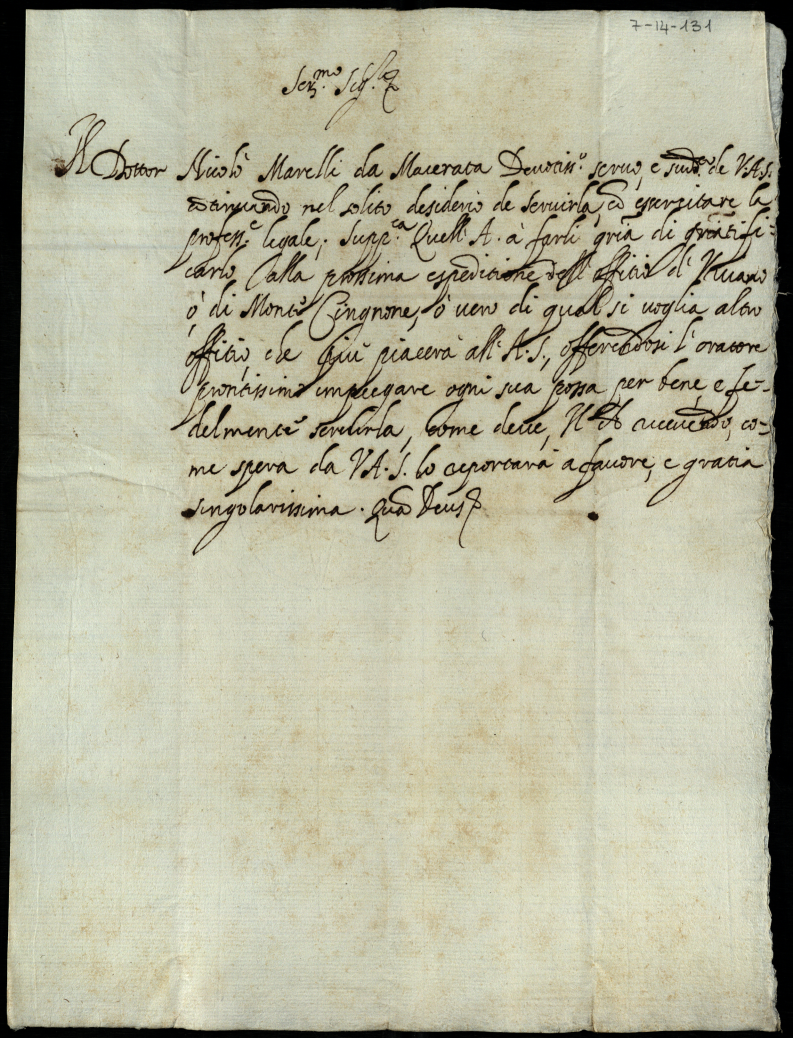 7-14-131
Ser.mo Sig.re
Il Dottor Nicolò Marelli da Macerata Deuotiss.o seruo, e sudd.to de V.A.S.
cōtinuando nel solito desiderio de seruirla, ed esercitare la
profess.e legale, supp.ca Quell'A. à farli gr̄ia di gratifi=
carlo, alla prossima espeditione dell'offitio di
ò di Monte Cingnone, ò uero di qual si uoglia altro
offitio, che più piacerà all'A.S., offerendosi l'oratore
prontissimo impiegare ogni sua possa per bene, e fe=
delmente seruirla, come deue, Il che riceuendo, co=
me spera da V.A.S. lo reportarà a fauore, e gratia
singolarissima. Quā Deus